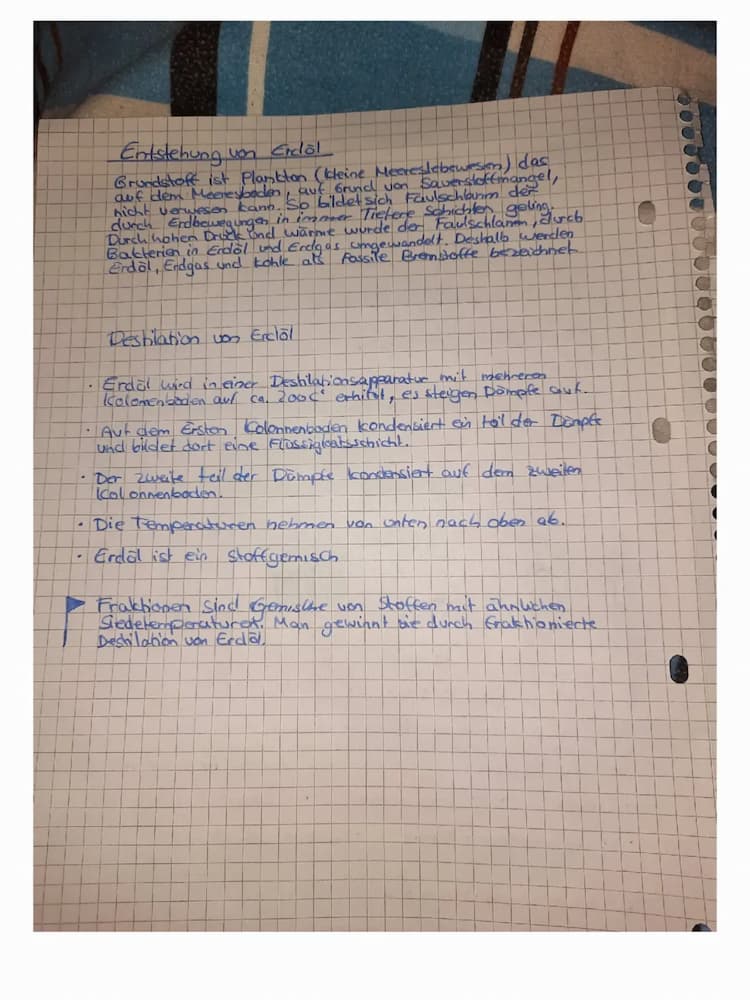 Entstehung von Erdöl
Grundstoff ist Plankton (kleine Meereslebewesen) das
auf dem Meeresboden, auf Grund von Sauerstoffmangel,
nicht verwesen kann. So bildet sich Faulschlamm der
durch Erdbewegungen in immer Tiefere Schichten gelang.
Durch hohen Druck und wärme wurde der Faulschlamm, durch
Bakterien in Erdöl und Erdgas umgewandelt. Deshalb werden
Erdöl, Erdgas und Kohle als Fossile Brennstoffe bezeichnet
Destilation von Erdöl
· Erdöl wird in einer Destilationsapparatur mit mehreren
Kolonenböden auf ca. 200C° erhitzt, es steigen Dämpfe auf.
· Auf dem Ersten Kolonnenboden kondensiert ein teil der Dämpfe
und bildet dort eine Flüssigkeitsschicht.
· Der zweite teil der Dämpfe kondensiert auf dem zweiten
Kolonnenboden.
· Die Temperaturen nehmen von unten nach oben ab.
· Erdöl ist ein Stoffgemisch
Fraktionen sind Gemische von Stoffen mit ähnlichen
Siedetemperaturen. Man gewinnt sie durch fraktionierte
Destilation von Erdöl.